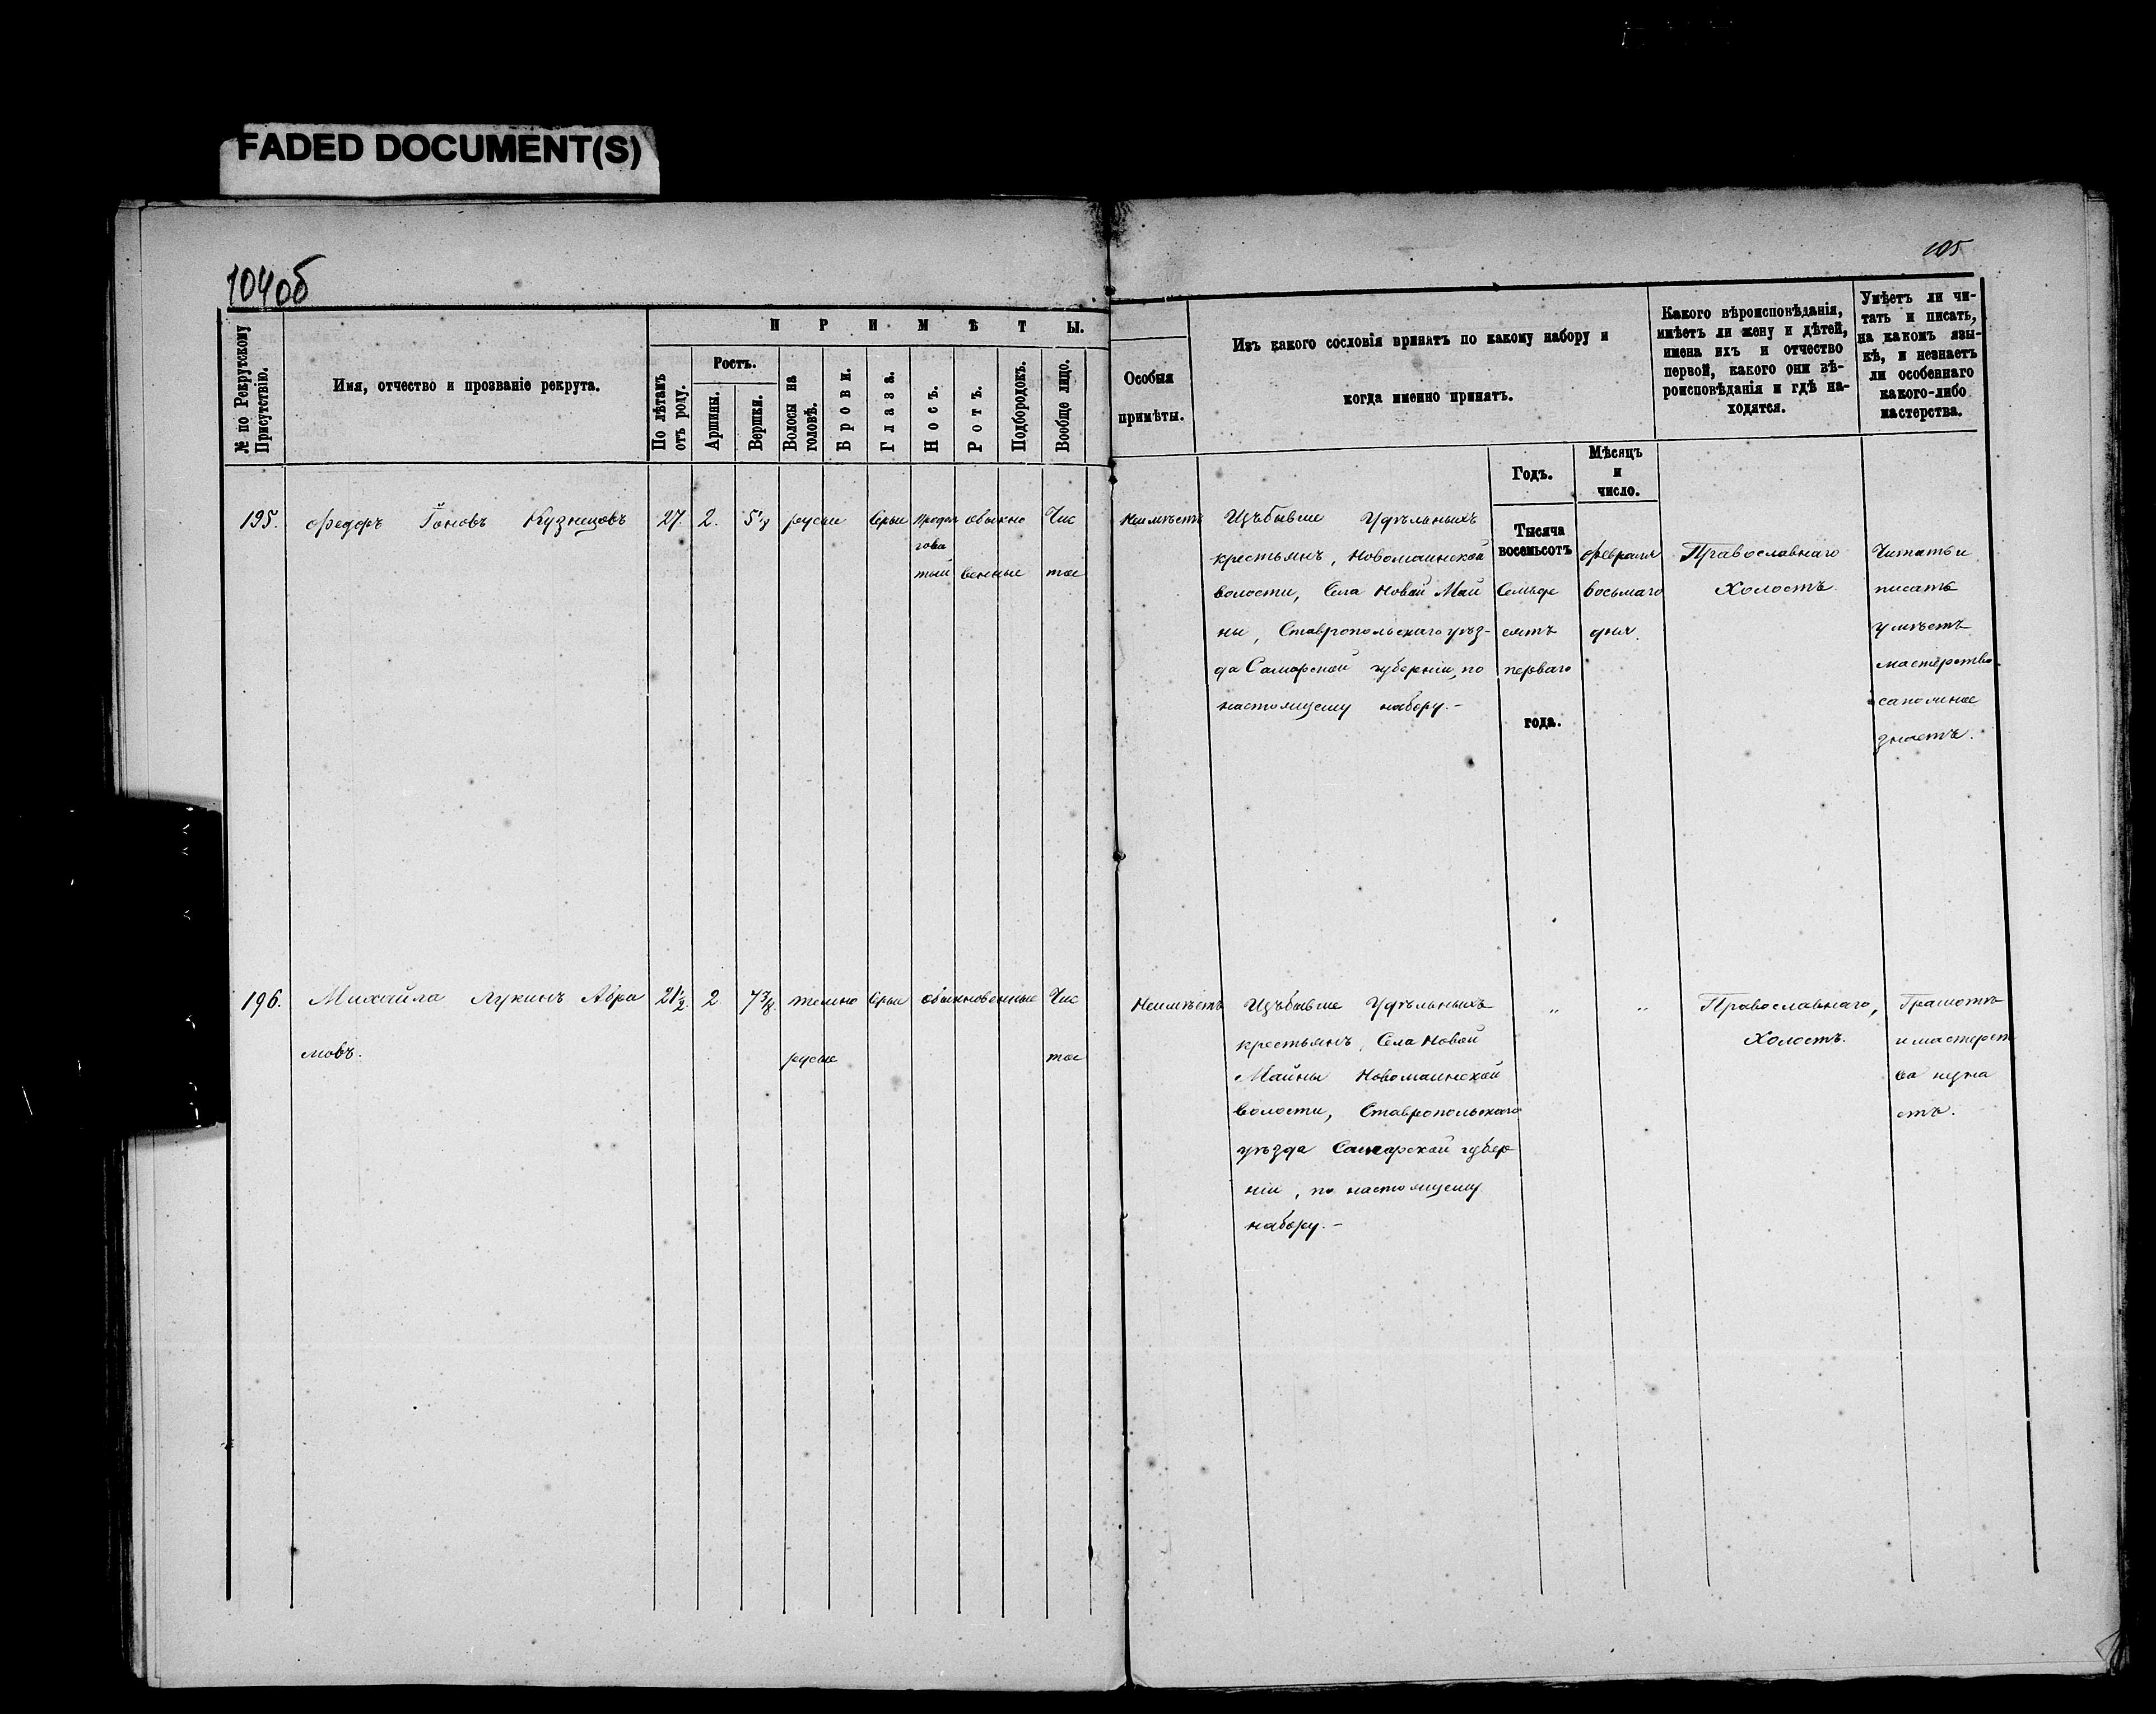 FADED DOCUMENT(S)
104об
105
№ по Рекрутскому Присутствію.
Имя, отчество и прозваніе рекрута.
ПРИМѢТЫ.
По лѣтамъ отъ роду.
Ростъ.
Аршины.
Вершки.
Волосы на головѣ.
Брови.
Глаза.
Носъ.
Ротъ.
Подбородокъ.
Вообще лицо.
Особыя
примѣты.
Изъ какого сословія принятъ по какому набору и
когда именно принятъ.
Годъ.
Мѣсяцъ
и
число.
Какого вѣроисповѣданія,
имѣетъ ли жену и дѣтей,
имена ихъ и отчество
первой, какого они вѣ-
роисповѣданія и гдѣ на-
ходятся.
Умѣетъ ли чи-
тать и писать,
на какомъ язы-
кѣ, и незнаетъ
ли особеннаго
какого-либо
мастерства.
195.
Федоръ Іоновъ Кузнецовъ
27.
2.
5⅛
русые
Серые
Продол
гова
тый
обыкно
венные
Чис
тое
Неимѣетъ
Изъ бывше Удѣльныхъ
крестьянъ, Новомаинской
волости, Села Новой Май
ны, Ставропольскаго уѣз-
да Самарской губерніи, по
настоящему набору.-
Тысяча
восемьсотъ
Семьде
сятъ
перваго
года.
февраля
восьмаго
дня.
Православнаго
Холостъ.
Читать и
писать
умѣетъ
мастерство
сапожное
знаетъ.
196.
Михайла Лукинъ Абра
мовъ.
21½.
2
7⅜.
темно
русые
Серые
обыкновенные
Чис
тое
Неимѣетъ
Изъ бывше Удѣльныхъ
крестьянъ, Села Новой
Майны Новомаинской
волости, Ставропольскаго
уѣзда Самарской губер
ніи, по настоящему
набору.-
„
„
Православнаго,
Холостъ.
Грамотѣ
и мастерст
ва незна
етъ.